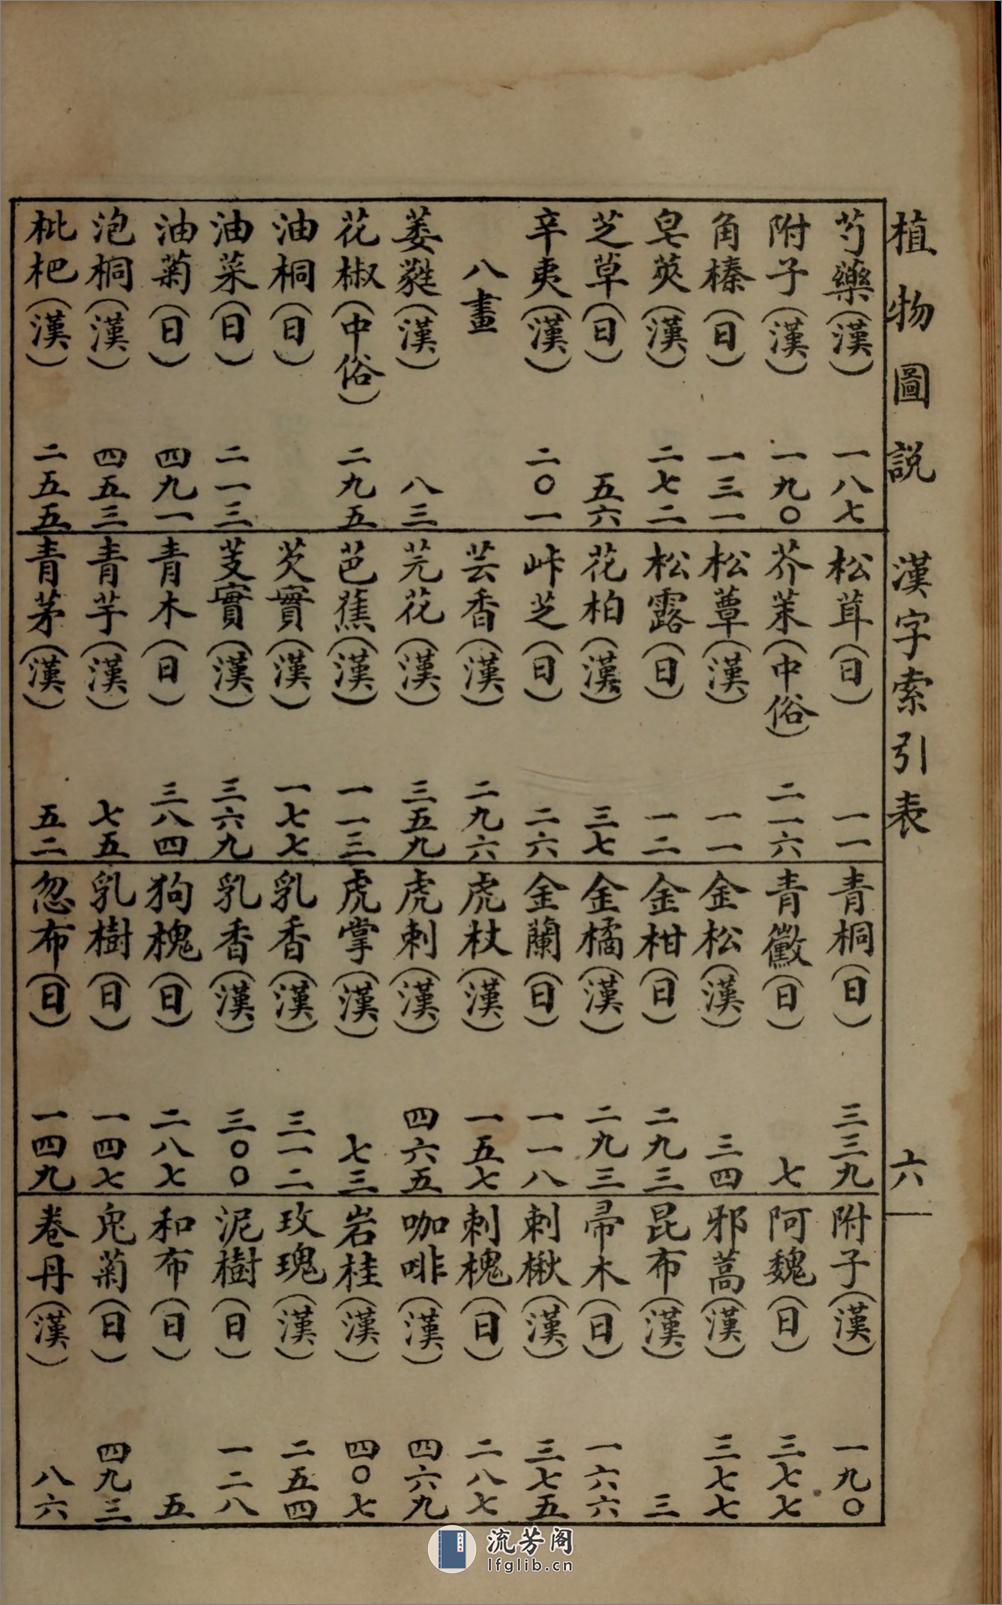 植物圖説 漢字索引表 六
芍藥(漢) 一八七
附子(漢) 一九〇
角榛(日) 一三一
皂莢(漢) 二七二
芝草(日) 五六
辛夷(漢) 二〇一
八畫
萎蕤(漢) 八三
花椒(中俗) 二九五
油桐(日)
油菜(日) 二一三
油菊(日) 四九一
泡桐(漢) 四五三
枇杷(漢) 二五五
松茸(日) 一一
芥茉(中俗) 二一六
松蕈(漢) 一一
松露(日) 一二
花柏(漢) 三七
峠芝(日) 二六
芸香(漢) 二九六
芫花(漢) 三五九
芭蕉(漢) 一一三
芡實(漢) 一七七
芰實(漢) 三六九
青木(日) 三八四
青芋(漢) 七五
青茅(漢) 五二
青桐(日) 三三九
青黴(日) 七
金松(漢) 三四
金柑(日) 二九三
金橘(漢) 二九三
金蘭(日) 一一八
虎杖(漢) 一五七
虎刺(漢) 四六五
虎掌(漢) 七三
乳香(漢) 三一二
乳香(漢) 三〇〇
狗槐(日) 二八七
乳樹(日) 一四七
忽布(日) 一四九
附子(漢) 一九〇
阿魏(日) 三七七
邪蒿(漢) 三七七
昆布(漢) 三
帚木(日) 一六六
刺楸(漢) 三七五
刺槐(日) 二八七
咖啡(漢) 四六九
岩桂(漢) 四〇七
玫瑰(漢) 二五四
泥樹(日) 一二八
和布(日) 五
兒菊(日) 四九三
卷丹(漢) 八六
流芳阁
lfglib.cn